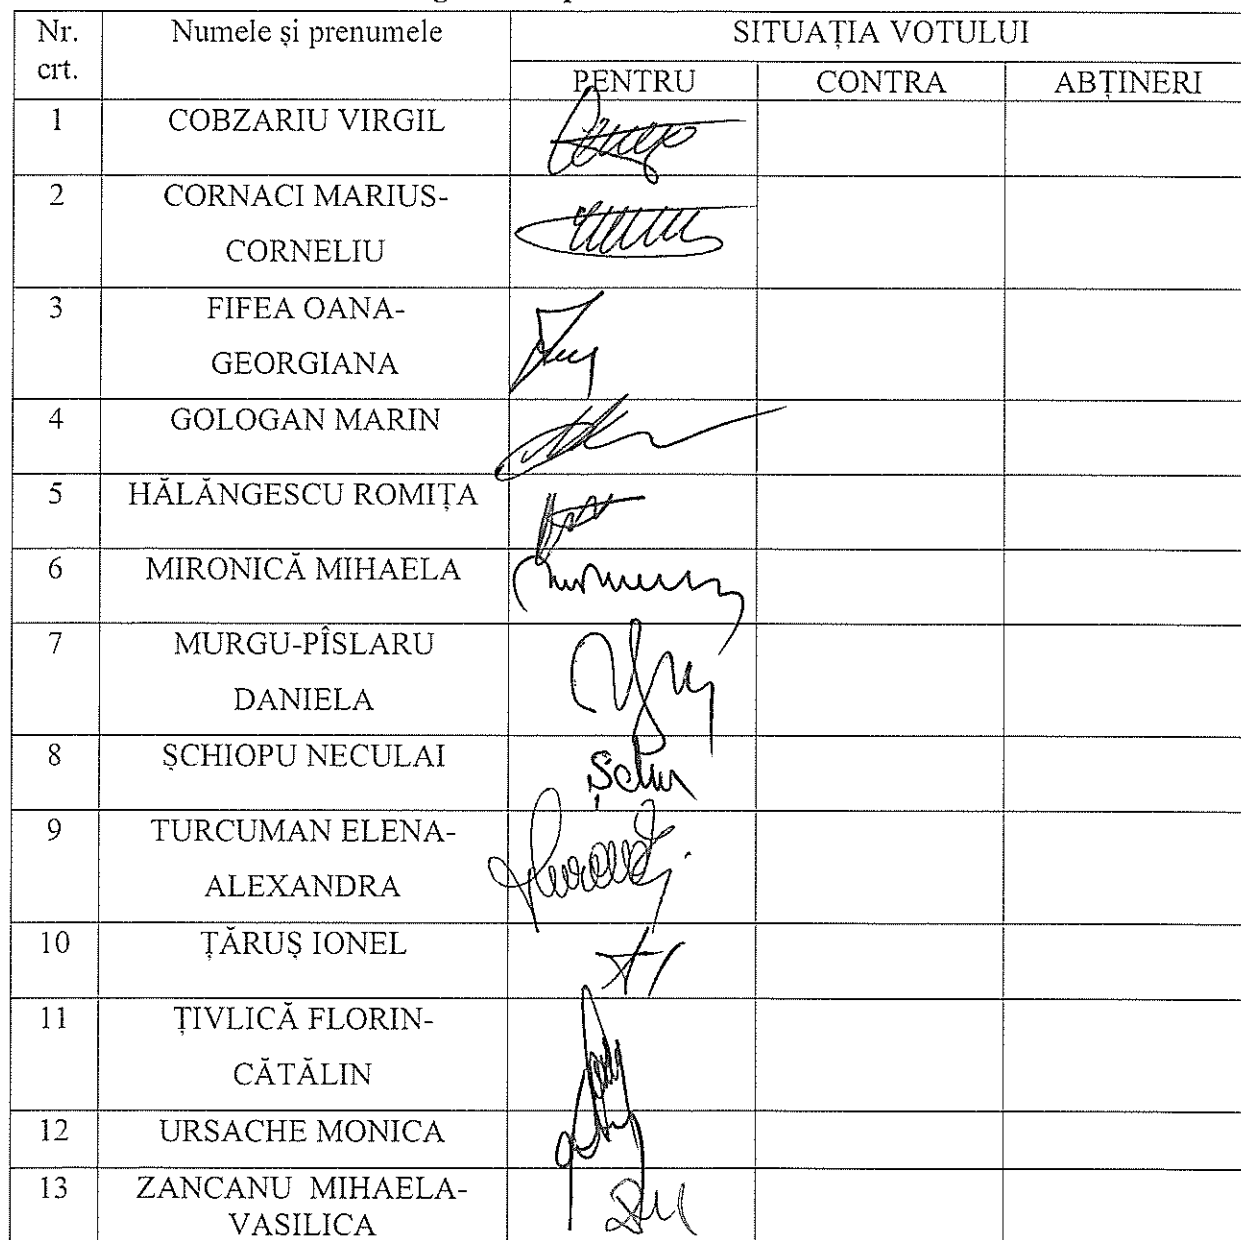 Nr. Numele și prenumele SITUAȚIA VOTULUI
crt.
PENTRU CONTRA ABȚINERI
1 COBZARIU VIRGIL
2 CORNACI MARIUS-
CORNELIU
3 FIFEA OANA-
GEORGIANA
4 GOLOGAN MARIN
5 HĂLĂNGESCU ROMIȚA
6 MIRONICĂ MIHAELA
7 MURGU-PÎSLARU
DANIELA
8 ȘCHIOPU NECULAI
9 TURCUMAN ELENA-
ALEXANDRA
10 ȚĂRUȘ IONEL
11 ȚIVLICĂ FLORIN-
CĂTĂLIN
12 URSACHE MONICA
13 ZANCANU MIHAELA-
VASILICA